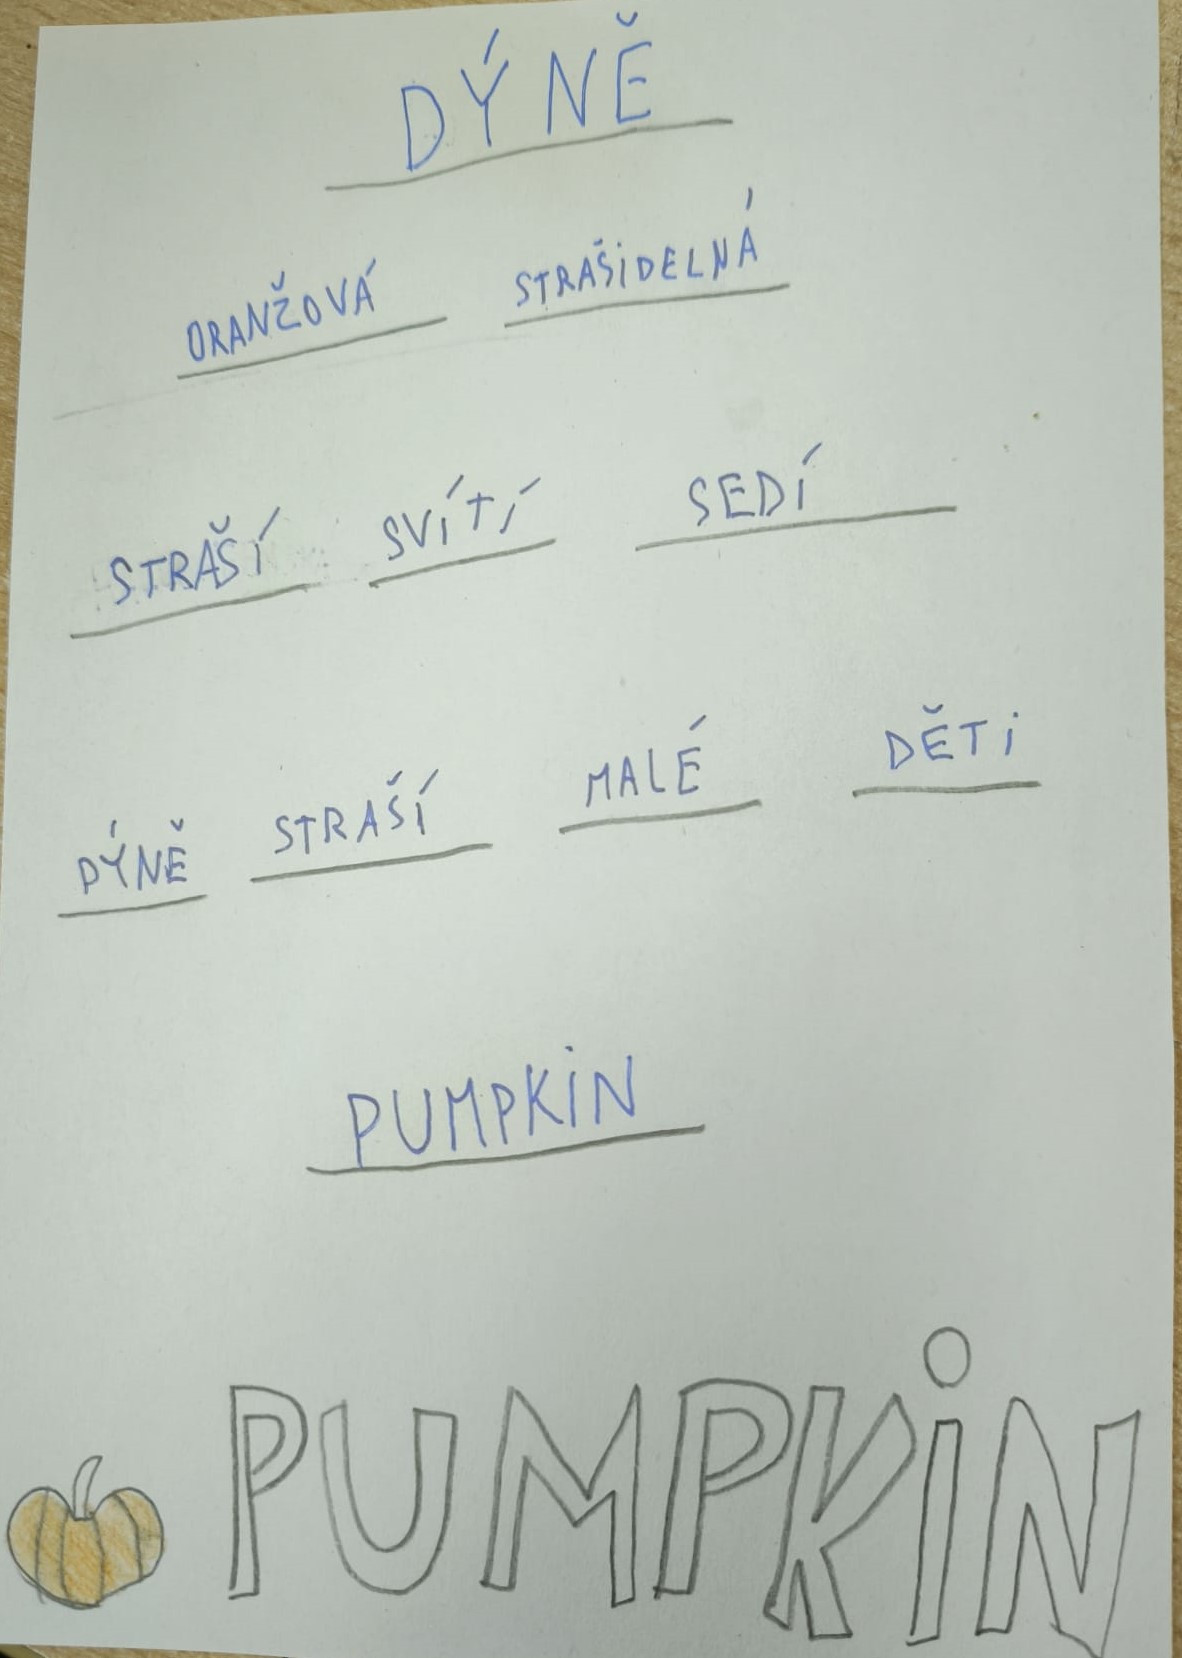 DÝNĚ
ORANŽOVÁ STRAŠiDELNÁ
STRAŠÍ SVÍTÍ SEDÍ
DÝNĚ STRAŠÍ MALÉ DĚTi
PUMPKiN
PUMPKiN